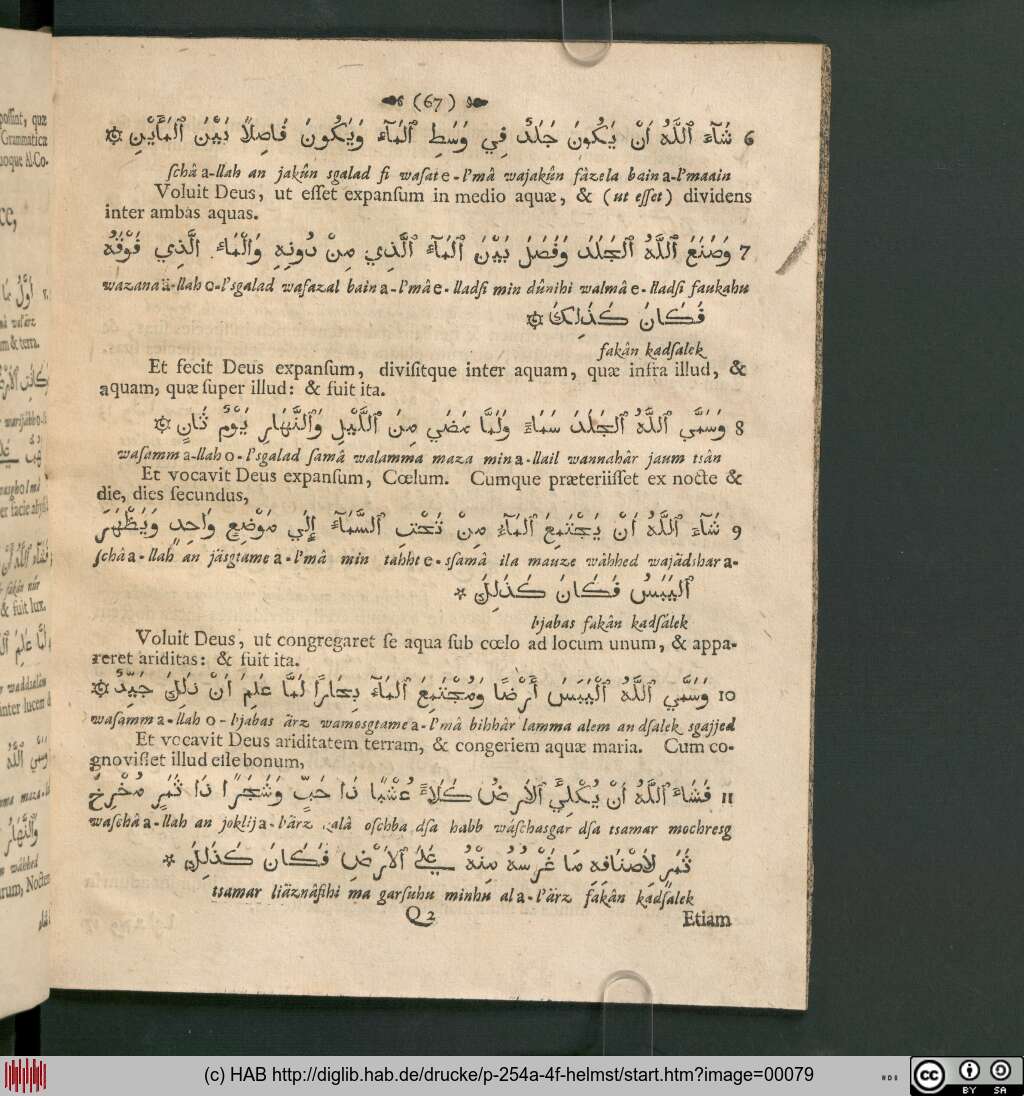 (67)
6 شَآءَ ٱللَّهُ اَنْ يَكُونَ جَلَدٌ فِي وَسَطِ ٱلمَآءَ وَيَكُونَ فَاصِلاً بَيْنَ ٱلمَأَيْنِ ۞
ſchâ a-llah an jakûn sgalad fi waſate-l'mâ wajakûn fâzela baina-l'maain
Voluit Deus, ut eſſet expanſum in medio aquæ, & (ut eſſet) dividens
inter ambas aquas.
7 وَصَنَعَ ٱللَّهُ ٱلجَلَدَ وَفَصَلَ بَيْنَ ٱلمَآءَ ٱلَّذِي مِنْ دُونِهِ وَٱلْمَاءَ ٱلَّذِي فَوْقَهُ
wazanaä-llaho-l'sgalad wafazal baina-l'mâe-lladſi min dûnihi walmâe-lladſi faukahu
فَكَانَ كَذَلِكَ ۞
fakân kadſalek
Et fecit Deus expanſum, diviſitque inter aquam, quæ infra illud, &
aquam, quæ ſuper illud: & fuit ita.
8 وَسَمَّي ٱللَّهُ ٱلجَلَدَ سَمَاءً وَلَمَّا مَضَي مِنَ ٱللَّيْلِ وَٱلنَّهَارِ يَوْمٌ ثَانٍ ۞
waſamma-llaho-l'sgalad ſamâ walamma maza mina-llail wannahâr jaum tsân
Et vocavit Deus expanſum, Cœlum. Cumque præteriiſſet ex nocte &
die, dies ſecundus,
9 شَآءَ ٱللَّهُ اَنْ يَجْتَمِعَ ٱلمَآءُ مِنْ تَحْتِ ٱلسَّمَآءَ إِلَي مَوْضِعٍ وَاحِدٍ وَيَظْهَرَ
ſchâa-llah an jäsgtamea-l'mâ min tahhte-sſamâ ila mauze wâhhed wajädsharа-
ٱليَبَسُ فَكَانَ كَذَلِكَ *
ljabas fakân kadſâlek
Voluit Deus, ut congregaret ſe aqua ſub cœlo ad locum unum, & appa-
reret ariditas: & fuit ita.
10 وَسَمَّي ٱللَّهُ ٱلْيَبَسَ أَرْضًا وَمُجْتَمِعَ ٱلمَآءَ بِحَارًا لَمَّا عَلِمَ اَنْ ذَلِكَ جَيِّدٌ ۞
waſamma-llaho-ljabas ärz wamosgtamea-l'mâ bihhâr lamma alem an dſalek sgajjed
Et vocavit Deus ariditatem terram, & congeriem aquæ maria. Cum co-
gnoviſſet illud eſſe bonum,
11 فَشَاءَ ٱللَّهُ اَنْ يُكْلِيَ ٱلاَرضُ كَلاَءً عُشْبًا ذَا حَبٍّ وَشَجَرًا ذَا ثَمَرٍ مُخْرِجٌ
waſchâa-llah an joklija-l'ärz kalâ oſchba dſa habb wâſchasgar dſa tsamar mochresg
ثَمَرٍ لِاَصْنَافِهِ مَا غَرْسُهُ مِنْهُ عَلَيَ ٱلاَرْضِ فَكَانَ كَذَلِكَ *
tsamar liäznâfihi ma garſuhu minhu ala-l'ärz fakân kadſalek
Q 2
Etiam
(c) HAB http://diglib.hab.de/drucke/p-254a-4f-helmst/start.htm?image=00079
cc BY SA